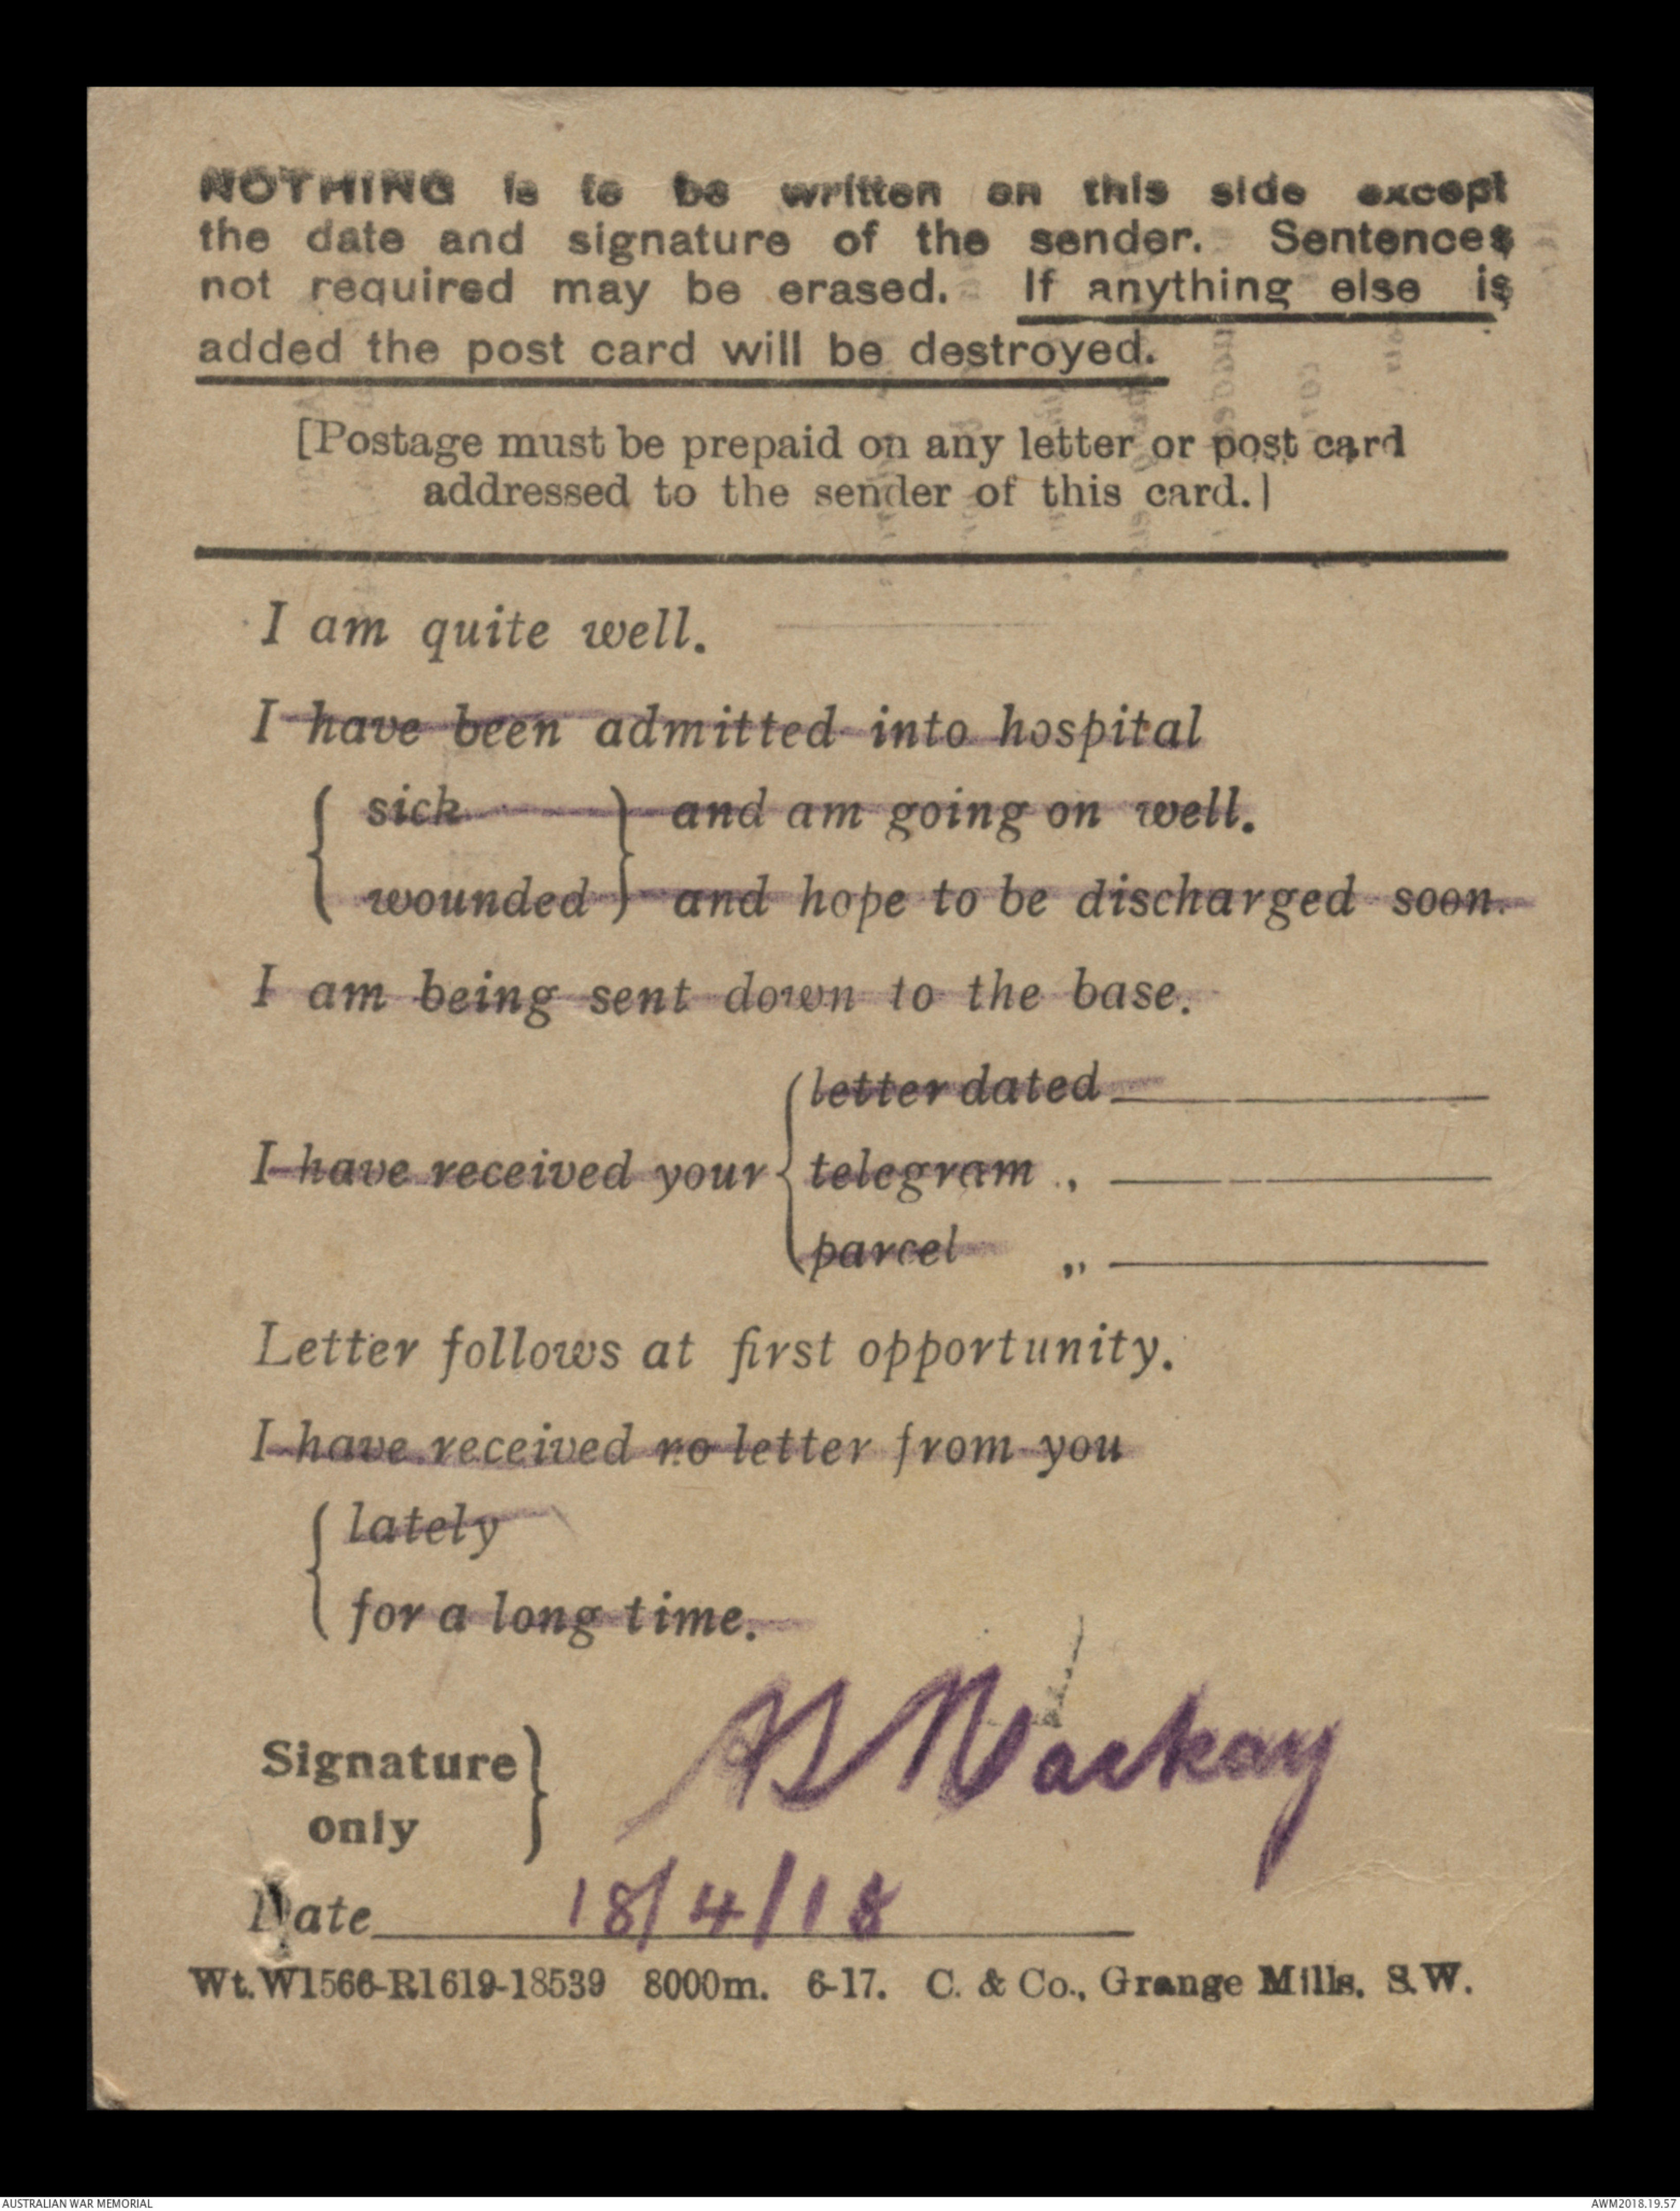 NOTHING is to be written on this side except
the date and signature of the sender. Sentences
not required may be erased. If anything else is
added the post card will be destroyed.
[Postage must be prepaid on any letter or post card
addressed to the sender of this card.]
I am quite well.
I have been admitted into hospital
sick and am going on well.
wounded and hope to be discharged soon.
I am being sent down to the base.
letter dated
I have received your telegram „
parcel „
Letter follows at first opportunity.
I have received no letter from you
lately
for a long time.
Signature
only
Mackay
Date 18/4/18
Wt.W1566-R1619-18539 8000m. 6-17. C. & Co., Grange Mills, S.W.
AUSTRALIAN WAR MEMORIAL
AWM2018.19.57